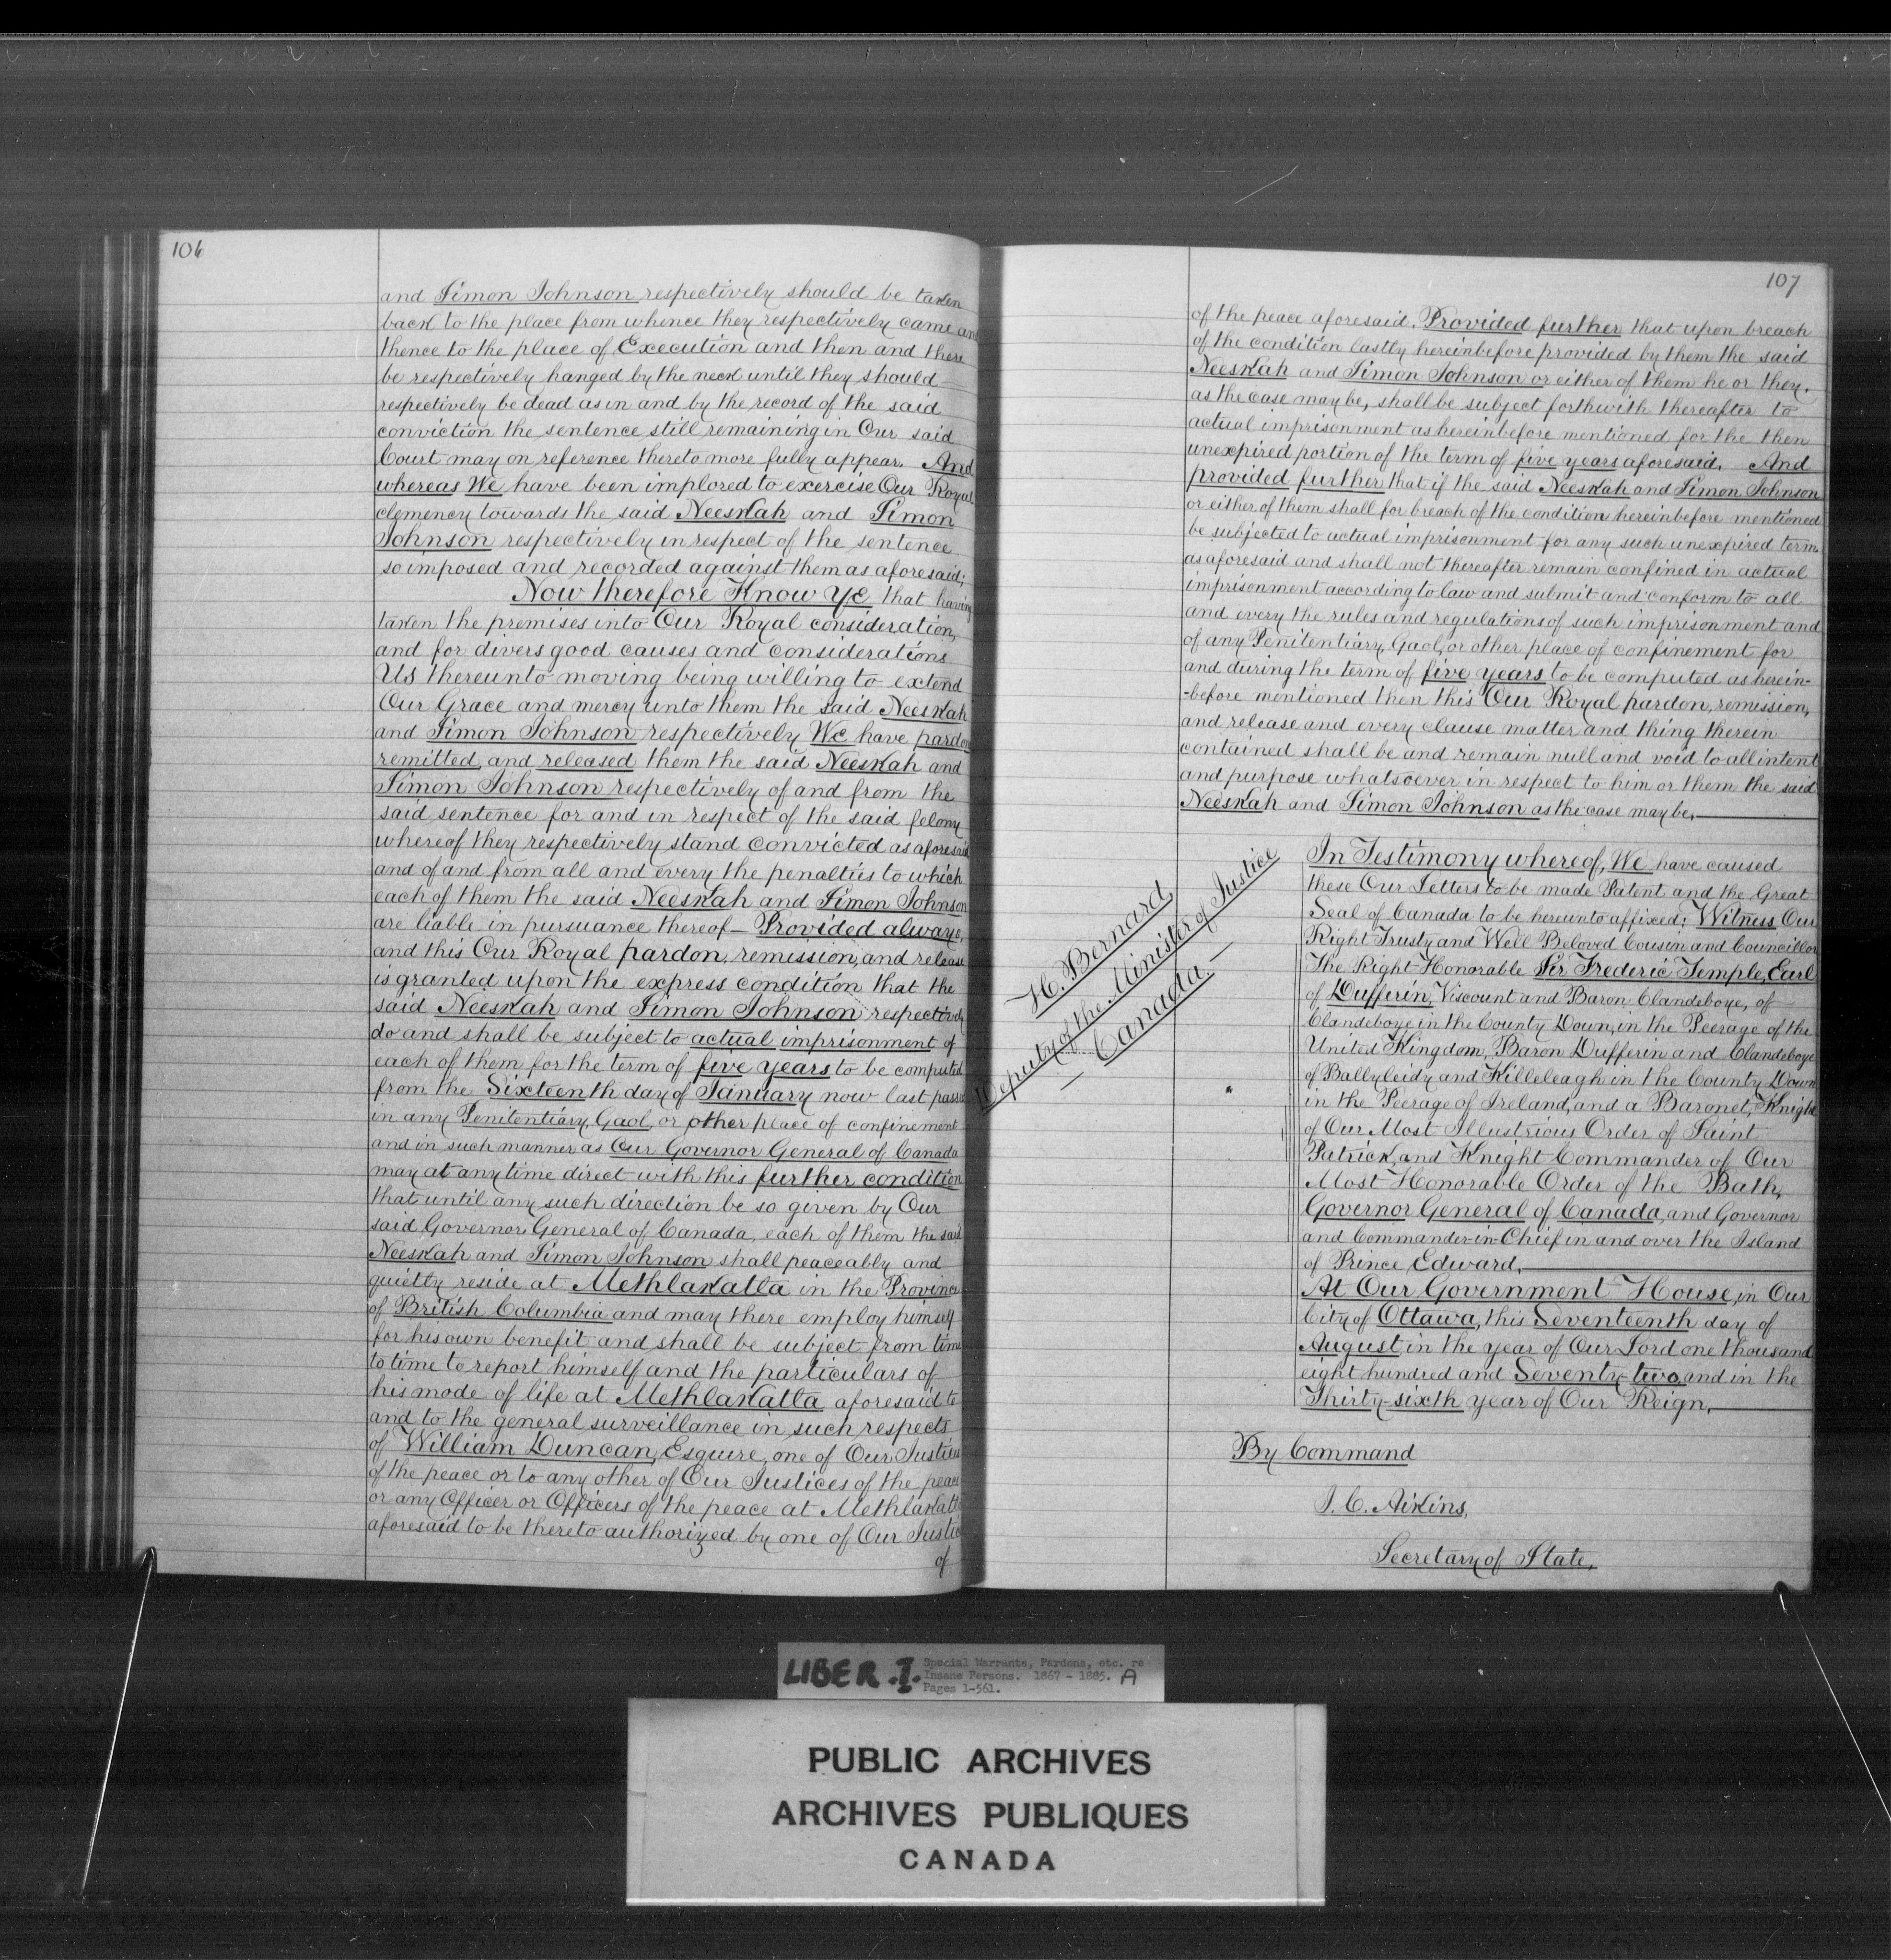 106
and Simon Johnson respectively should be taken
back to the place from whence they respectively came an
thence to the place of Execution and then and there
be respectively hanged by the neck until they should
respectively be dead as in and by the record of the said
conviction the sentence still remaining in Our said
Court may on reference thereto more fully appear. And
whereas We have been implored to exercise Our Royal
clemency towards the said Neeskah and Simon
Johnson respectively in respect of the sentence
so imposed and recorded against them as aforesaid;
Now therefore Know Ye that having
taken the premises into Our Royal consideration,
and for divers good causes and considerations
Us thereunto moving being willing to extend
Our Grace and mercy unto them the said Neeskah
and Simon Johnson respectively We have pardon
remitted, and released them the said Neeskah and
Simon Johnson respectively of and from the
said sentence for and in respect of the said felony
whereof they respectively stand convicted as aforesaid
and of and from all and every the penalties to which
each of them the said Neeskah and Simon Johnson
are liable in pursuance thereof— Provided always,
and this Our Royal pardon, remission, and release
is granted upon the express condition that the
said Neeskah and Simon Johnson respectively
do and shall be subject to actual imprisonment of
each of them for the term of five years to be computed
from the Sixteenth day of January now last passed
in any Penitentiary, Gaol, or other place of confinement
and in such manner as Our Governor General of Canada
may at any time direct with this further condition
that until any such direction be so given by Our
said Governor General of Canada, each of them the said
Neeskah and Simon Johnson shall peaceably and
quietly reside at Methlakatla in the Province
of British Columbia and may there employ himself
for his own benefit and shall be subject from time
to time to report himself and the particulars of
his mode of life at Methlakatla aforesaid to
and to the general surveillance in such respects
of William Duncan, Esquire, one of Our Justices
of the peace or to any other of Our Justices of the peace
or any Officer or Officers of the peace at Methlakatla
aforesaid to be thereto authorized by one of Our Justice
of
107
of the peace aforesaid. Provided further that upon breach
of the condition lastly hereinbefore provided by them the said
Neeskah and Simon Johnson or either of them he or they.
as the case may be, shall be subject forthwith thereafter to
actual imprisonment as hereinbefore mentioned for the then
unexpired portion of the term of five years aforesaid. And
provided further that if the said Neeskah and Simon Johnson
or either of them shall for breach of the condition hereinbefore mentioned
be subjected to actual imprisonment for any such unexpired term
as aforesaid and shall not thereafter remain confined in actual
imprisonment according to law and submit and conform to all
and every the rules and regulations of such imprisonment and
of any Penitentiary, Gaol, or other place of confinement for
and during the term of five years to be computed as herein-
-before mentioned then this Our Royal pardon, remission,
and release and every clause matter and thing therein
contained shall be and remain null and void to all intent
and purpose whatsoever in respect to him or them the said
Neeskah and Simon Johnson as the case may be.
H. Bernard
Deputy of the Minister of Justice
— Canada —
In Testimony whereof, We have caused
these Our Letters to be made Patent and the Great
Seal of Canada to be hereunto affixed; Witness Our
Right Trusty and Well Beloved Cousin and Councillor
The Right Honorable Sir Frederic Temple, Earl
of Dufferin, Viscount and Baron Clandeboye, of
Clandeboye in the County Down, in the Peerage of the
United Kingdom, Baron Dufferin and Clandeboye
of Ballyleidy and Killeleagh in the County Down
in the Peerage of Ireland, and a Baronet, Knight
of Our Most Illustrious Order of Saint
Patrick, and Knight Commander of Our
Most Honorable Order of the Bath,
Governor General of Canada, and Governor
and Commander-in-Chief in and over the Island
of Prince Edward.
At Our Government House, in Our
City of Ottawa, this Seventeenth day of
August in the year of Our Lord one thousand
eight hundred and Seventy two, and in the
Thirty-sixth year of Our Reign.
By Command
J. C. Aikins,
Secretary of State.
LIBER. I. Special Warrants, Pardons, etc. re
Insane Persons. 1867 - 1885. A
Pages 1-561.
PUBLIC ARCHIVES
ARCHIVES PUBLIQUES
CANADA